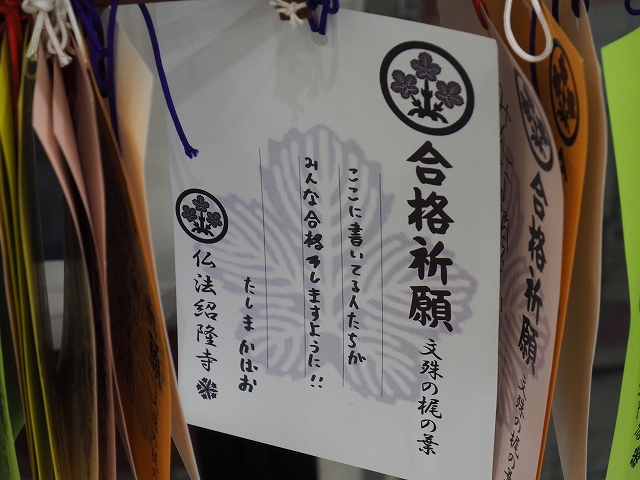 合格祈願 文殊の梶の葉
ここに書いてる人たちが
みんな合格しますように!!
たしま かほお
仏法紹隆寺
合格祈願 文殊の梶の葉